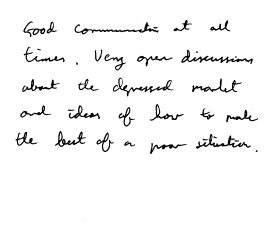 Good communication at all
times. Very open discussions
about the depressed market
and ideas of how to make
the best of a poor situation.